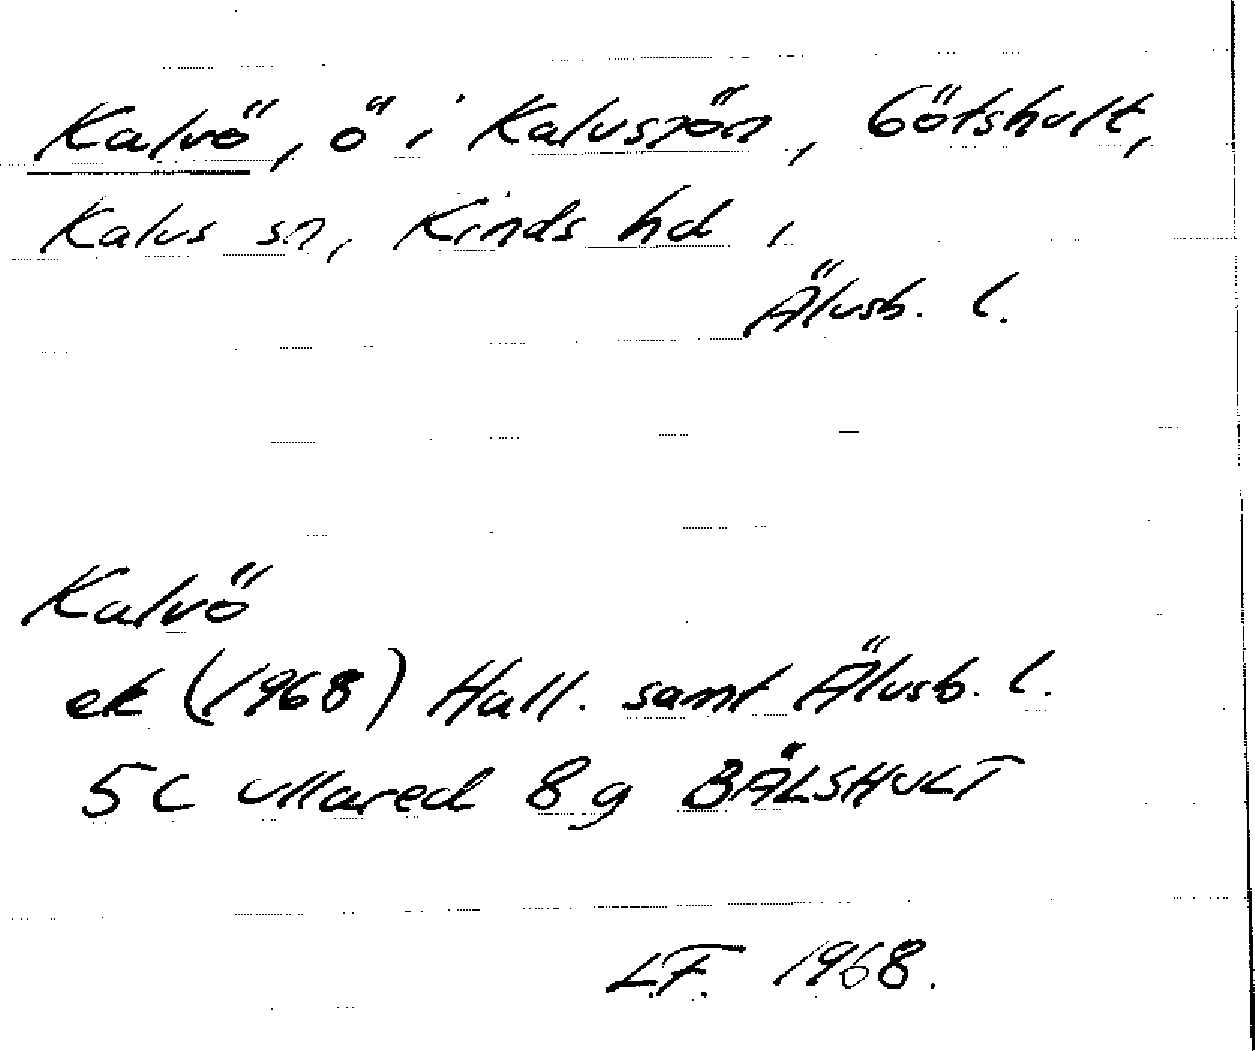 Kalvö, ö i Kalvsjön, Götshult,
Kalvs sn, Kinds hd,
Älvsb. l.
Kalvö
ek (1968) Hall. samt Älvsb. l.
5C Ullared 8g BÄLSHULT
L.F. 1968.